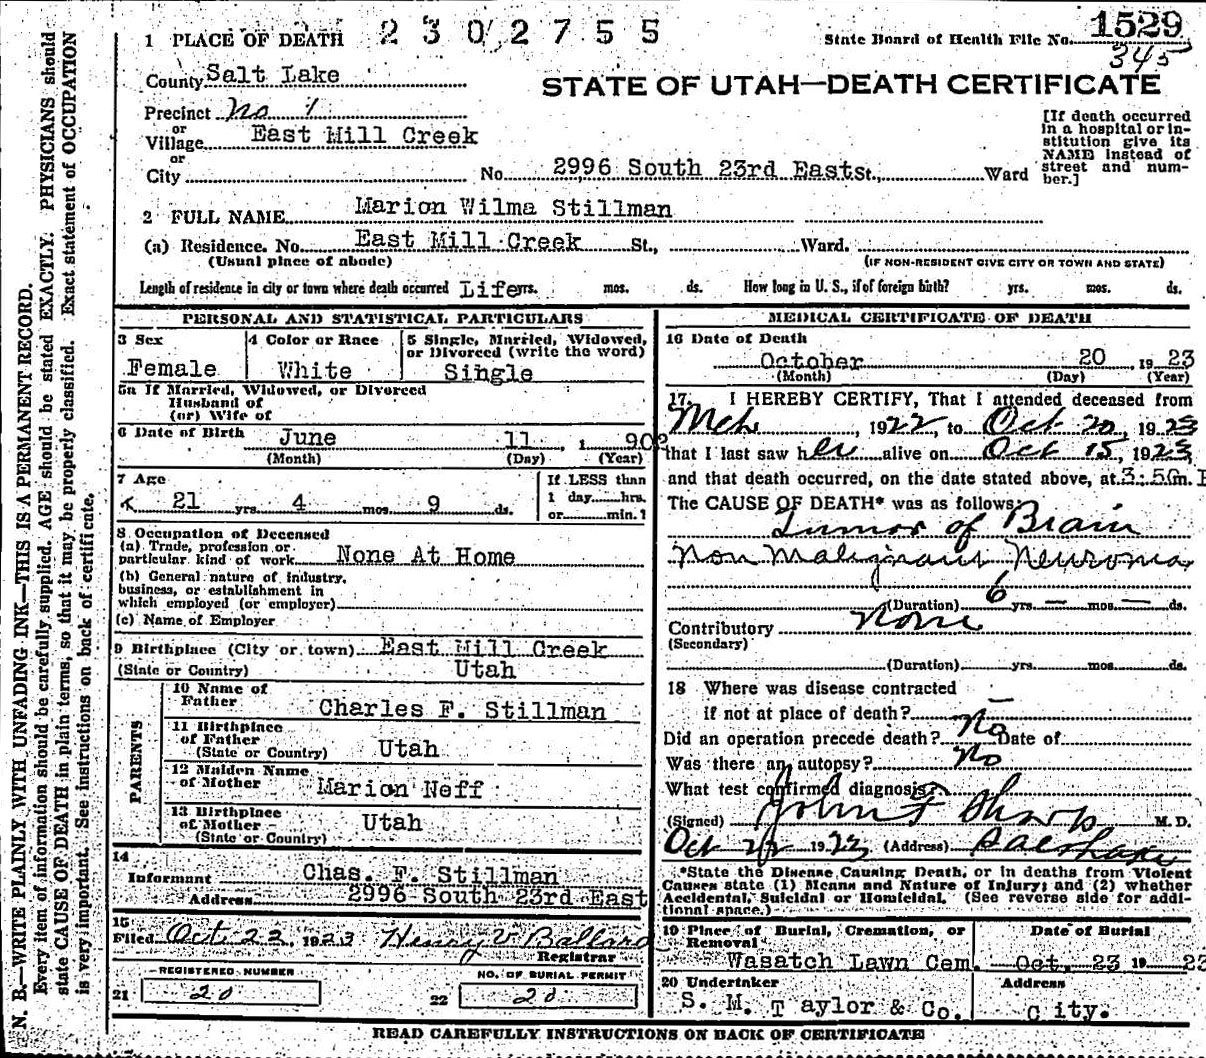 N. B.—WRITE PLAINLY WITH UNFADING INK—THIS IS A PERMANENT RECORD.
Every item of information should be carefully supplied. AGE should be stated EXACTLY. PHYSICIANS should
state CAUSE OF DEATH in plain terms, so that it may be properly classified. Exact statement of OCCUPATION
is very important. See instructions on back of certificate.
1 PLACE OF DEATH 2302755 State Board of Health File No. 1529
345
County Salt Lake
STATE OF UTAH—DEATH CERTIFICATE
Precinct No 1
or
Village East Mill Creek
or
City No. 2996 South 23rd East St., Ward
[If death occurred
in a hospital or in-
stitution give its
NAME instead of
street and num-
ber.]
2 FULL NAME Marion Wilma Stillman
(a) Residence. No. East Mill Creek St., Ward.
(Usual place of abode) (IF NON-RESIDENT GIVE CITY OR TOWN AND STATE)
Length of residence in city or town where death occurred Life yrs. mos. ds. How long in U. S., if of foreign birth? yrs. mos. ds.
PERSONAL AND STATISTICAL PARTICULARS
3 Sex 4 Color or Race 5 Single, Married, Widowed,
or Divorced (write the word)
Female White Single
5a If Married, Widowed, or Divorced
Husband of
(or) Wife of
6 Date of Birth June 11, 1 902
(Month) (Day) (Year)
7 Age If LESS than
21 yrs. 4 mos. 9 ds. 1 day hrs.
or min.?
8 Occupation of Deceased
(a) Trade, profession or
particular kind of work None At Home
(b) General nature of industry,
business, or establishment in
which employed (or employer)
(c) Name of Employer
9 Birthplace (City or town) East Mill Creek
(State or Country) Utah
PARENTS
10 Name of
Father Charles F. Stillman
11 Birthplace
of Father
(State or Country) Utah
12 Maiden Name
of Mother Marion Neff
13 Birthplace
of Mother Utah
(State or Country)
14
Informant Chas. F. Stillman
Address 2996 South 23rd East
15
Filed Oct 22, 1923 Henry V Ballard
Registrar
REGISTERED NUMBER NO. OF BURIAL PERMIT
21 20 22 20
MEDICAL CERTIFICATE OF DEATH
16 Date of Death
October 20 , 1923
(Month) (Day) (Year)
17. I HEREBY CERTIFY, That I attended deceased from
Mch , 1922, to Oct 20, 1923
that I last saw her alive on Oct 15, 1923
and that death occurred, on the date stated above, at 3:50 m. P
The CAUSE OF DEATH* was as follows:
Tumor of Brain
Non Malignant Neuroma
(Duration) 6 yrs. — mos. — ds.
Contributory None
(Secondary)
(Duration) yrs. mos. ds.
18 Where was disease contracted
if not at place of death? —
Did an operation precede death? No Date of
Was there an autopsy? No
What test confirmed diagnosis?
(Signed) John F Sharp M. D.
Oct 1923 (Address) Salt Lake
*State the Disease Causing Death, or in deaths from Violent
Causes state (1) Means and Nature of Injury; and (2) whether
Accidental, Suicidal or Homicidal. (See reverse side for addi-
tional space.)
19 Place of Burial, Cremation, or Date of Burial
Removal
Wasatch Lawn Cem. Oct. 23 19 23
20 Undertaker Address
S. M. Taylor & Co. City.
READ CAREFULLY INSTRUCTIONS ON BACK OF CERTIFICATE